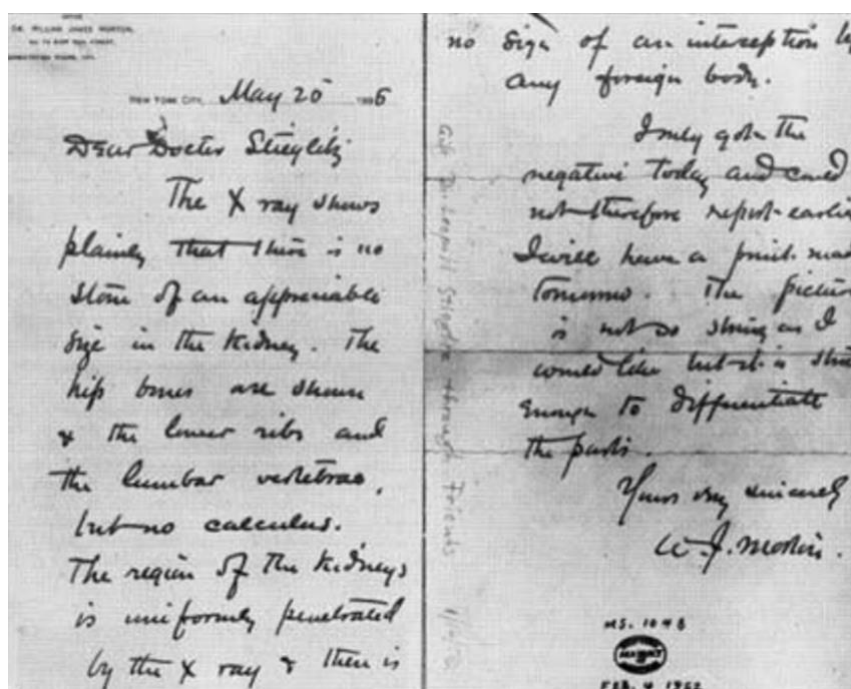 OFFICE
DR. WILLIAM JAMES MORTON,
NEW YORK CITY, May 20 1896
Dear Doctor Stieglitz
The X ray shows
plainly that there is no
stone of an appreciable
size in the kidney. The
hip bones are shown
& the lower ribs and
the lumbar vertebrae,
but no calculus.
The region of the kidneys
is uniformly penetrated
by the X ray & there is
no sign of an interception by
any foreign body.
I only got the
negative today and could
not therefore report earlier
I will have a print made
tomorrow. The picture
is not so strong as I
would like but it is
enough to differentiate
the parts.
Yours very sincerely
W. J. Morton.
through Friends
MS. 1048
FEB. 4 1952